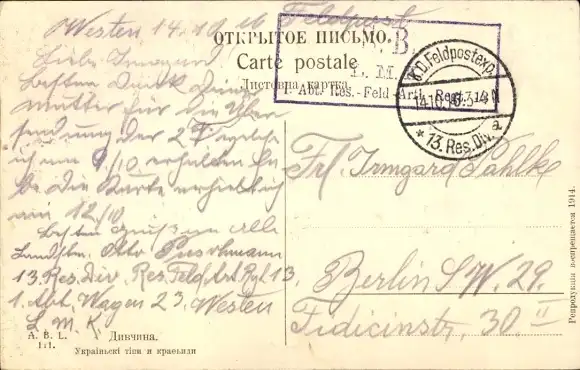 Westen 14.10.16 Feldpost
ОТКРЫТОЕ ПИСЬМО.
Carte postale
Листовна картка
B.
L. M.
I. Abt. Res.-Feld-Artl.-Regt.
K.D. Feldpostexp.
14.10.16.
a
* 13. Res. Div.
Liebe Irmgard
Besten Dank Deiner
Mutter für die Über
sendung der
ich am 9/10 erhalten
die Karte erhielt ich
am 12/10
Besten Gruß an Alle
Landstm. Otto
13. Res. Div. Res. Feld. Art. Rgt. 13
1. Abt. Wagen 23. Westen
L. M. K.
Frl. Irmgard Pahlke
Berlin S.W. 29.
Fidicinstr. 30 II
A. B. L.
111.
Дивчина.
Українські тіпи и краєвиди
Репродукция воспрещается 1914.